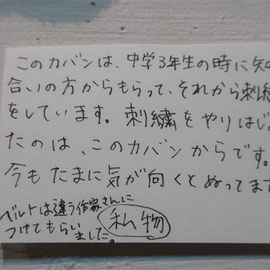 このカバンは、中学3年生の時に知
合いの方からもらって、それから刺繍
をしています。刺繍をやりはじ
たのは、このカバンからです。
今もたまに気が向くとぬってます
ベルトは違う作家さんに
つけてもらいました。
私物